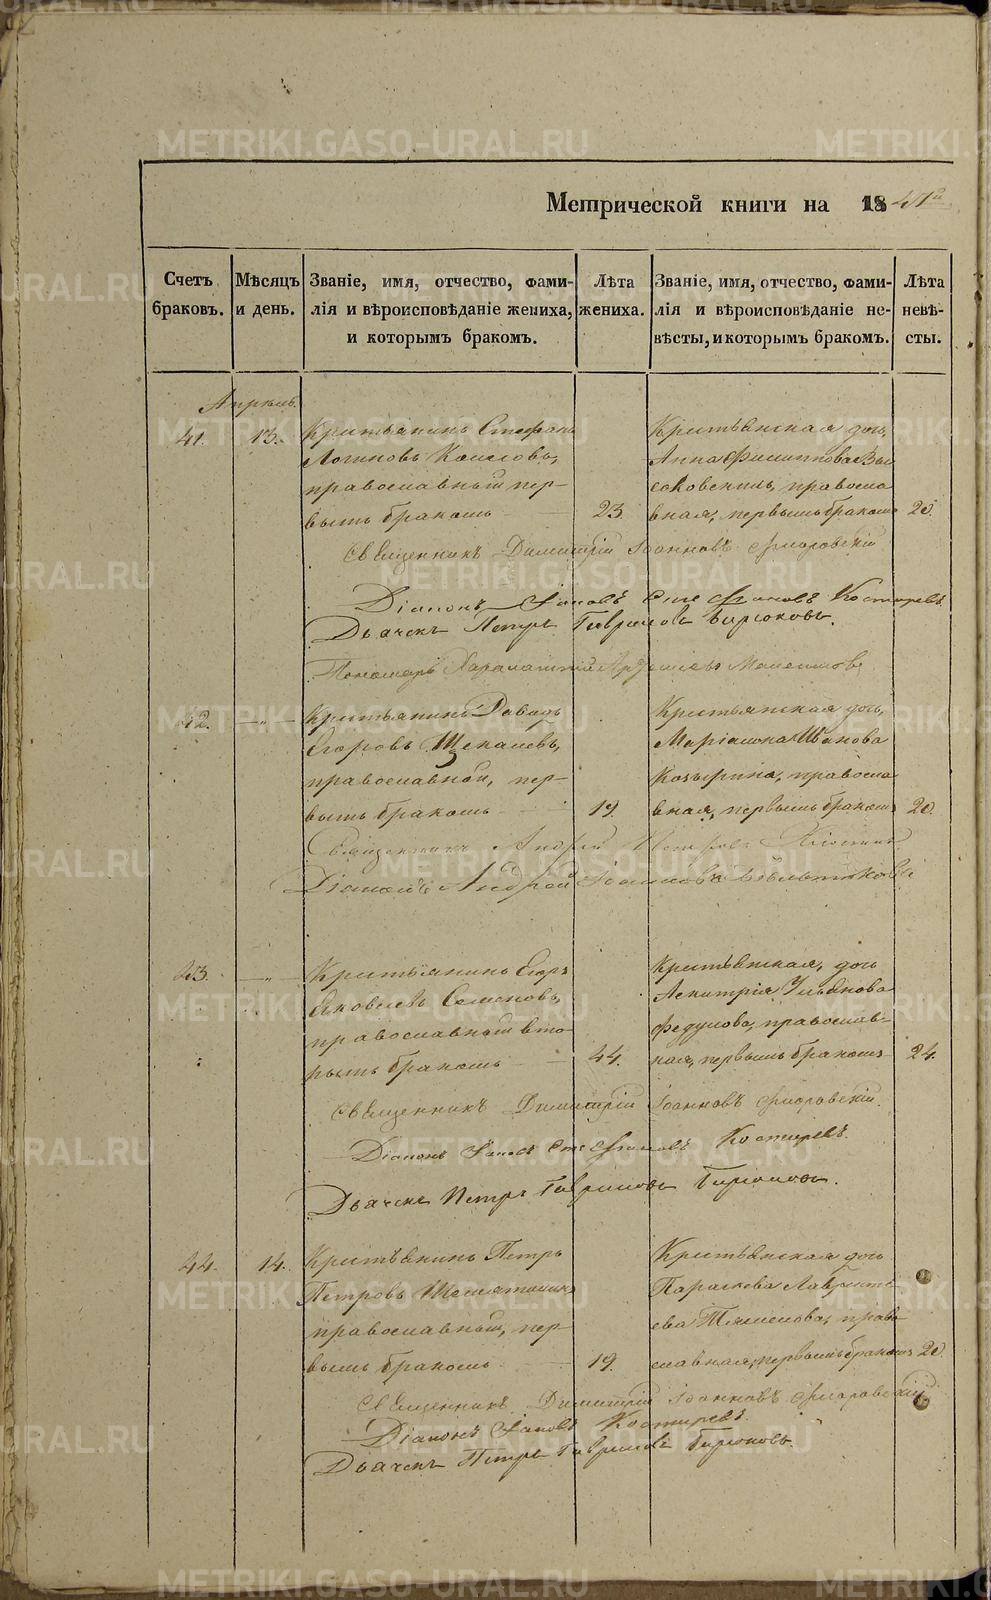 METRIKI.GASO-URAL.RU
Метрической книги на 1847й
Счетъ браковъ.
Мѣсяцъ и день.
Званіе, имя, отчество, фами-
лія и вѣроисповѣданіе жениха,
и которымъ бракомъ.
Лѣта жениха.
Званіе, имя, отчество, фами-
лія и вѣроисповѣданіе не-
вѣсты, и которымъ бракомъ.
Лѣта невѣ-
сты.
Апрѣль.
41. 13. Крестьянинъ Стефанъ
Логиновъ
православный пер-
вымъ бракомъ 23.
Крестьянская дочь,
Анна Филиппова
правосла
вная, первымъ бракомъ 20.
Священникъ Димитрій Іоанновъ Флоровскій
Діаконъ Іаковъ Стефановъ Костыревъ
Дьячекъ Петръ Гавриловъ Бирюковъ.
Пономарь Харалампій
42. Крестьянинъ Давидъ
Егоровъ Щекалевъ,
православный, пер-
вымъ бракомъ 19.
Крестьянская дочь,
Маріамна Иванова
Козырина, правосла
вная, первымъ бракомъ 20.
Священникъ Андрей Петровъ
Діаконъ Андрей Іоанновъ
43. Крестьянинъ Егоръ
Яковлевъ Семеновъ,
православный вто
рымъ бракомъ 44.
Крестьянская, дочь
Ульянова
Федулова, православ-
ная, первымъ бракомъ 24.
Священникъ Димитрій Іоанновъ Флоровскій.
Діаконъ Іаковъ Стефановъ Костыревъ.
Дьячекъ Петръ Гавриловъ Бирюковъ.
44. 14. Крестьянинъ Петръ
Петровъ
православный, пер-
вымъ бракомъ 19.
Крестьянская дочь
Параскева Лаврентъ
ева право
славная, первымъ бракомъ 20.
Священникъ Димитрій Іоанновъ Флоровскій
Діаконъ Іаковъ Костыревъ.
Дьячекъ Петръ Гавриловъ Бирюковъ.